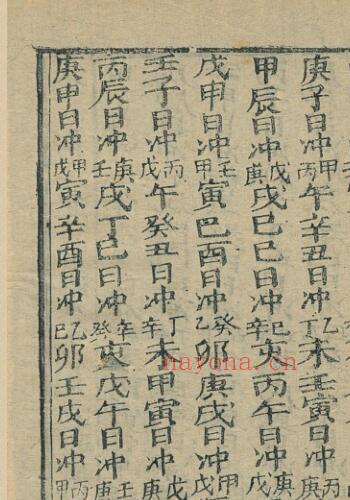 庚子日冲甲丙午辛丑日冲乙丁未壬寅日冲
甲辰日冲戊庚戌巳巳日冲巳辛亥丙午日冲庚戊
戊申日冲壬甲寅巳酉日冲癸乙卯庚戌日冲甲戊
壬子日冲丙戊午癸丑日冲丁辛未甲寅日冲戊庚
丙辰日冲庚壬戌丁巳日冲辛癸亥戊午日冲壬庚
庚申日冲甲戊寅辛酉日冲乙巳卯壬戌日冲丙甲
nayona.cn